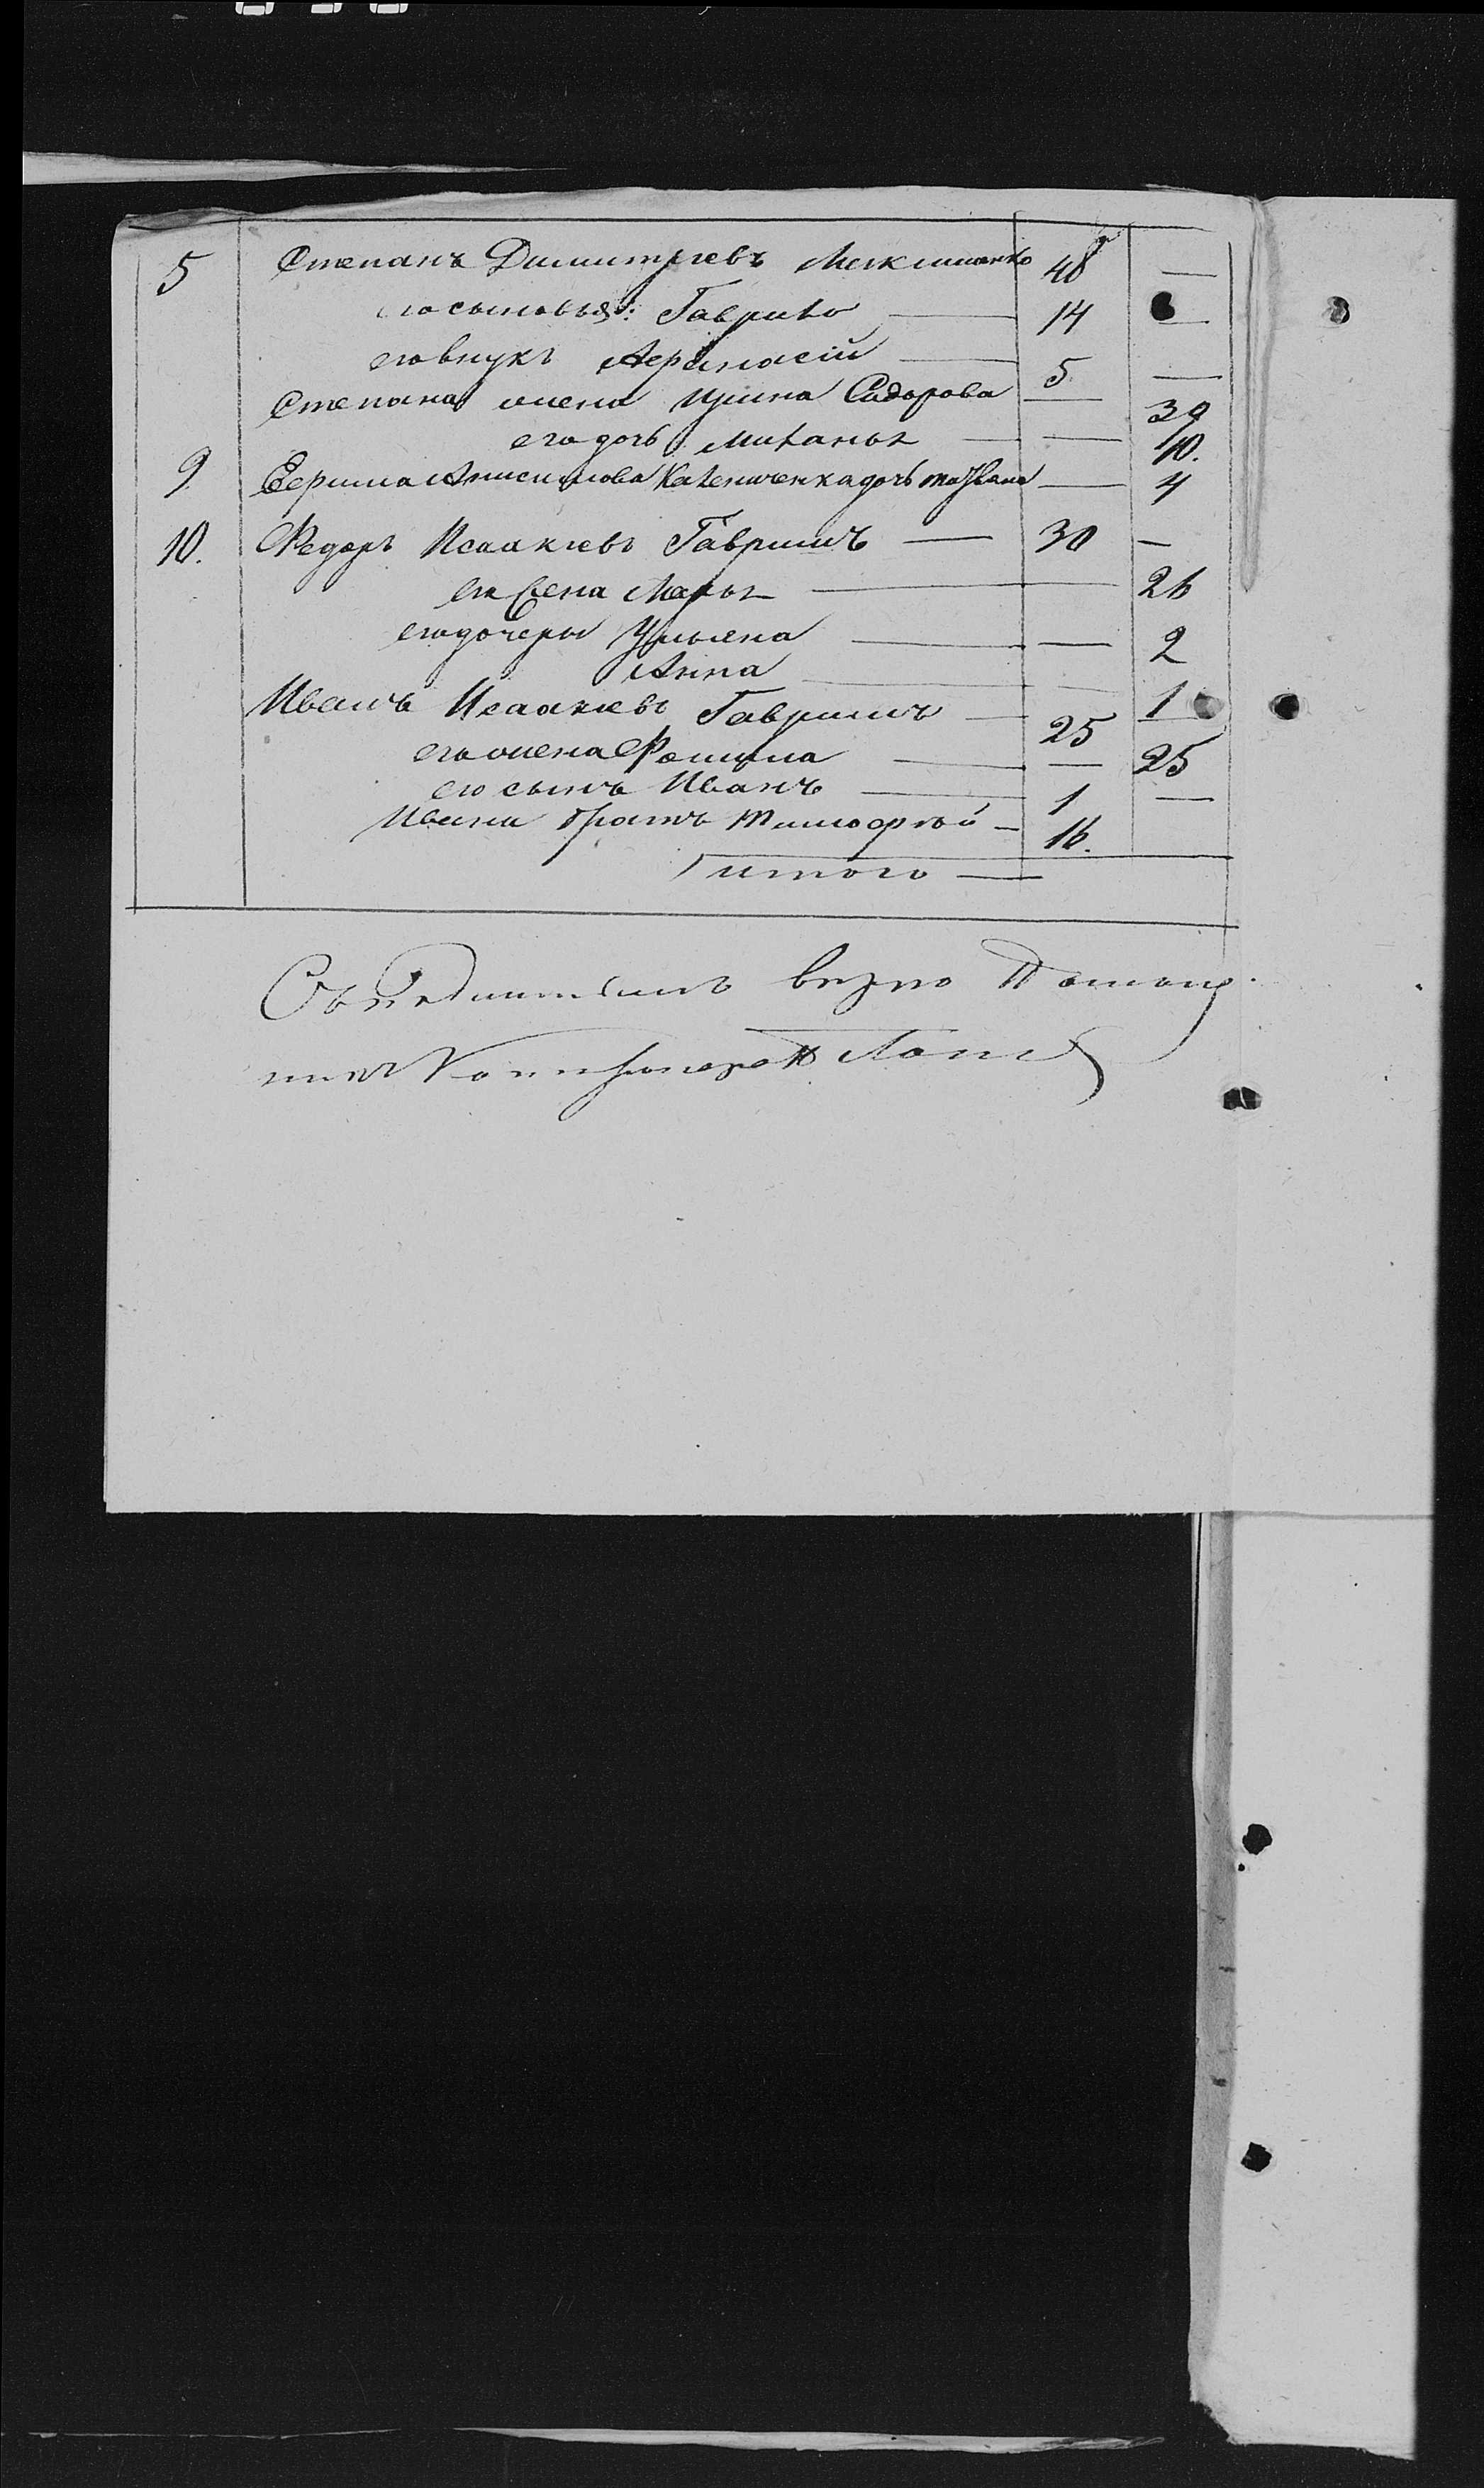 5 Степанъ Димитріевъ Максименко 48 —
его сыновья: Гаврило — 14 —
его внукъ Аѳанасій — 5 —
Степана жена Ирина Сидорова — 39
его дочь Миланья — — 10.
9 Ефима Анисимова Калениченка дочь Татьяна — 4
10. Ѳедоръ Исаакіевъ Гавришъ — 30 —
его жена Марья — 26
его дочери Ульяна — — 2
Анна — — 1
Иванъ Исаакіевъ Гавришъ — 25 —
его жена Фотина — — 25
его сынъ Иванъ — 1 —
Ивана братъ Тимоѳѣй — 16.
Итого —
Съ вѣрно